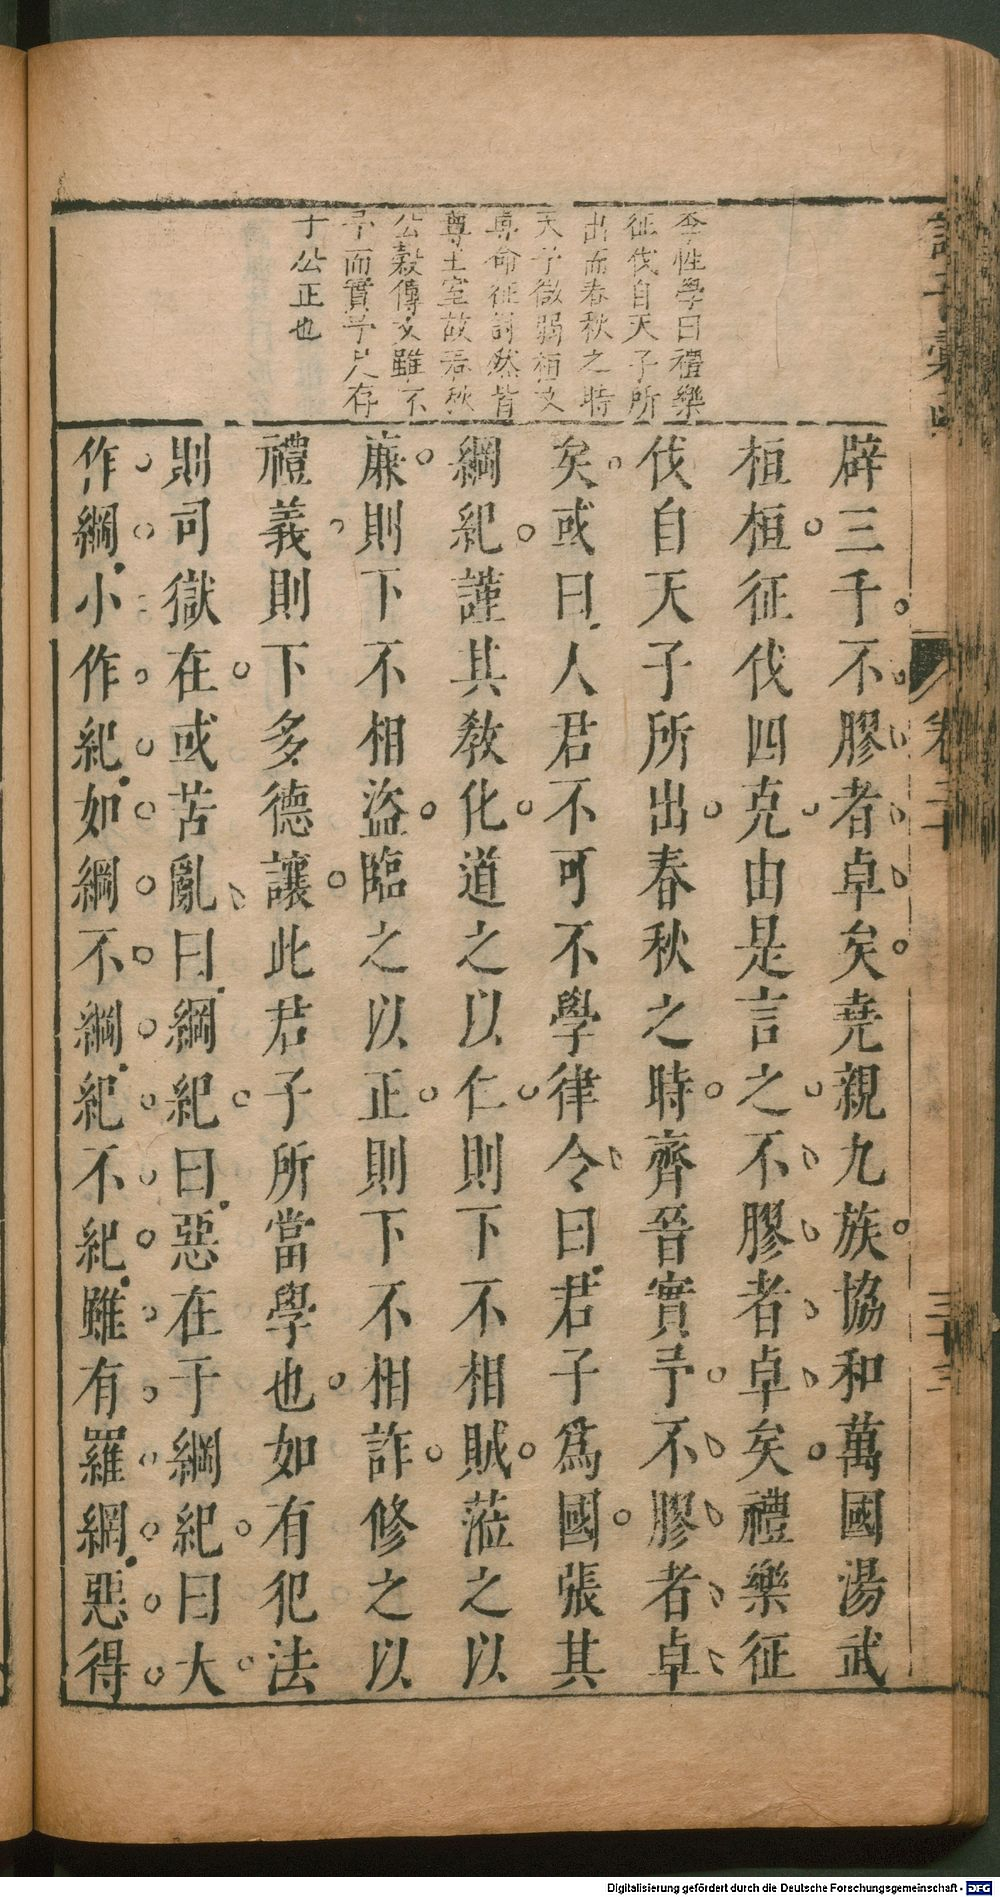 李性學曰禮樂
征伐自天子所
出而春秋之時
天子微弱桓文
專命征討然皆
尊王室故春秋
公穀傳文雖不
予而實予只存
于公正也
辟三千不膠者卓矣堯親九族協和萬國湯武
桓桓征伐四克由是言之不膠者卓矣禮樂征
伐自天子所出春秋之時齊晉實予不膠者卓
矣或曰人君不可不學律令曰君子爲國張其
綱紀謹其教化道之以仁則下不相賊蒞之以
廉則下不相盜臨之以正則下不相詐修之以
禮義則下多德讓此君子所當學也如有犯法
則司獄在或苦亂曰綱紀曰惡在于綱紀曰大
作綱小作紀如綱不綱紀不紀雖有羅網惡得
卷二
三十三
Digitalisierung gefördert durch die Deutsche Forschungsgemeinschaft - DFG